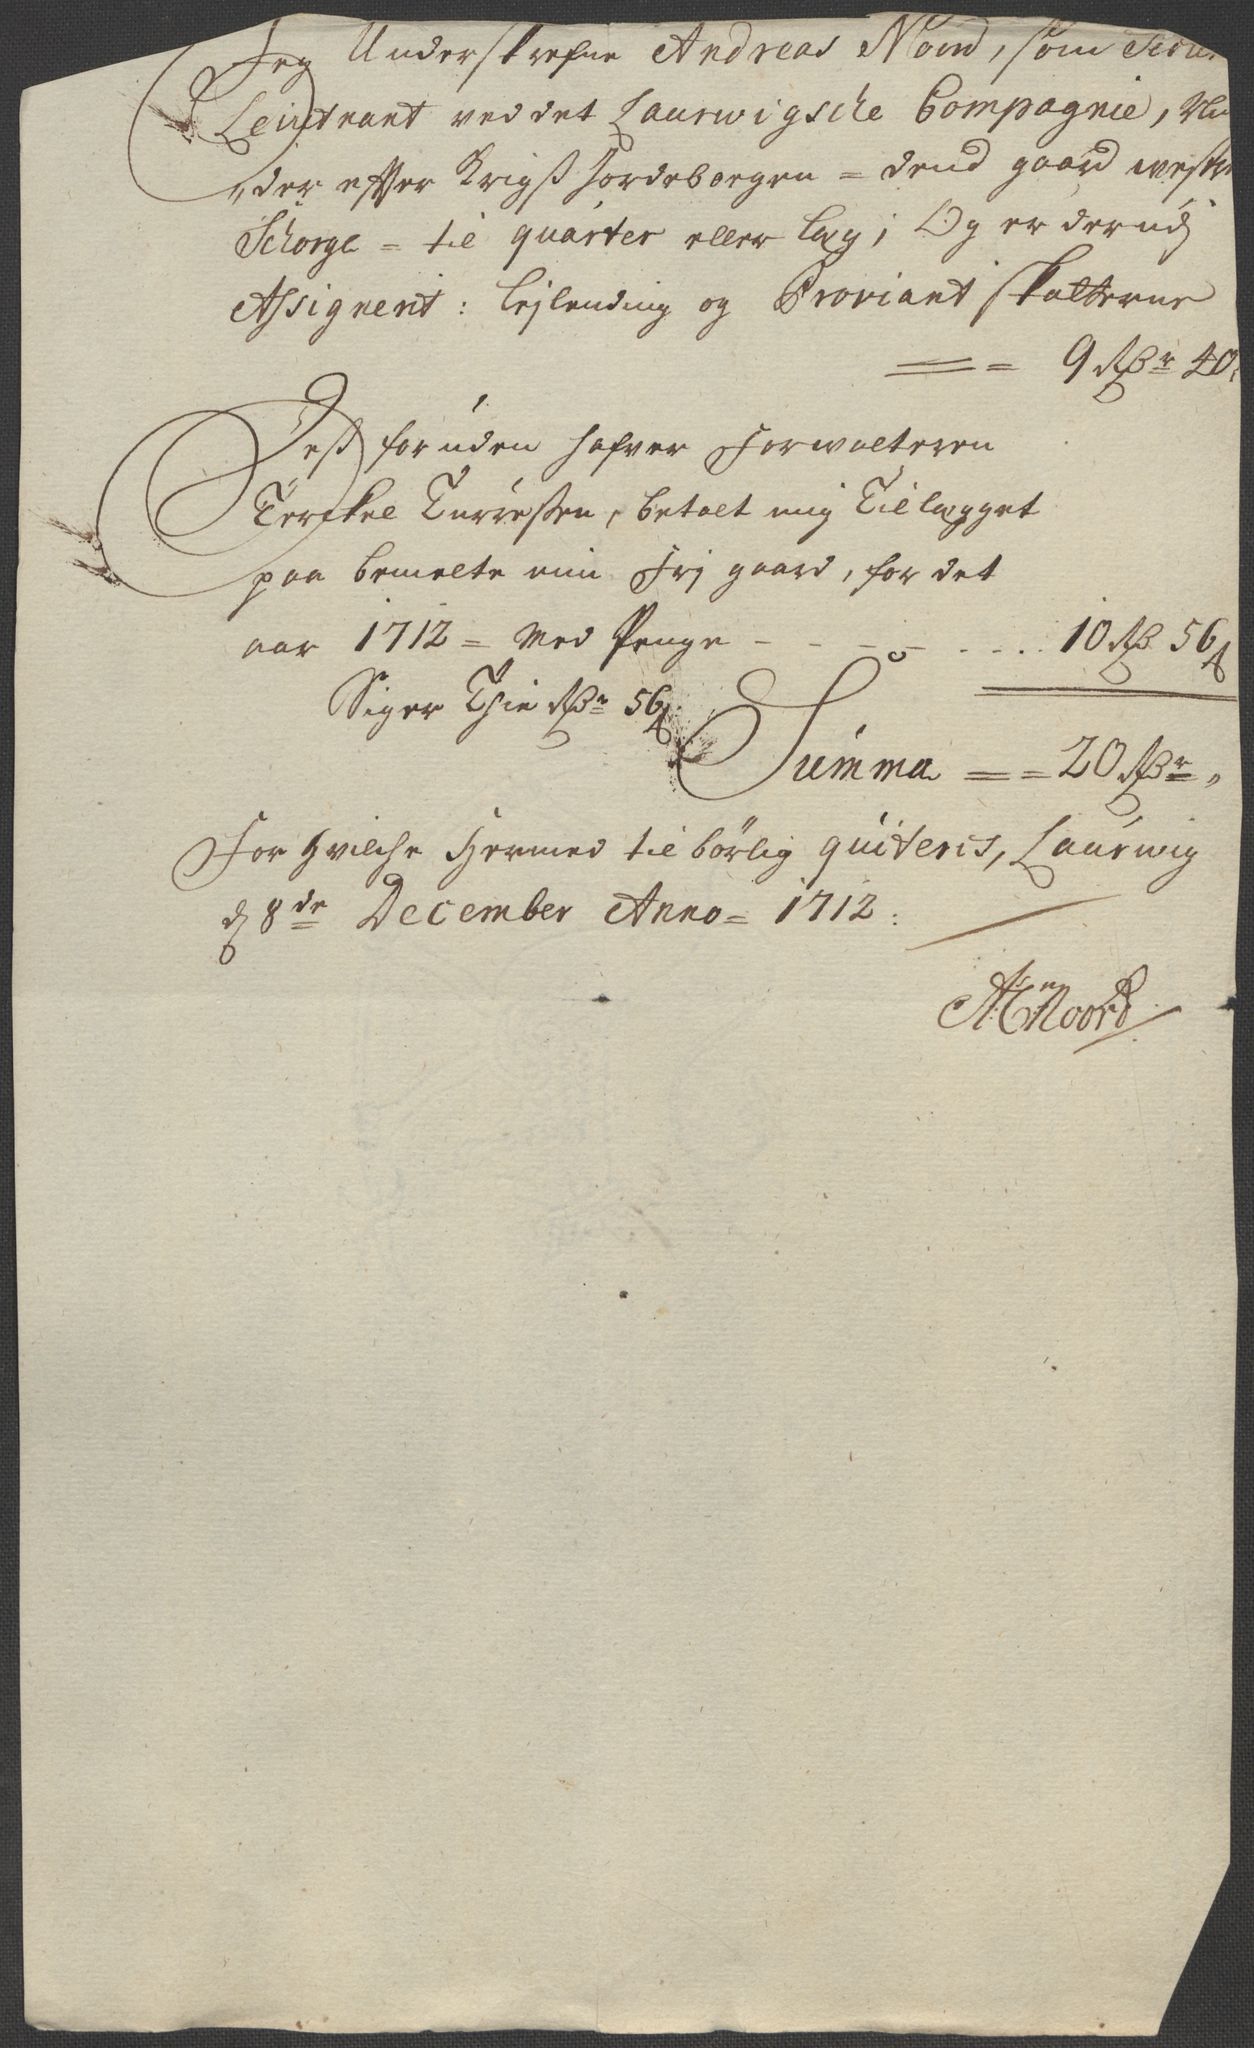 Jeg Underskrefne Andreas Noord, som
Leiutnant ved det Laurwigsche Compagnie,
der effter Krigß Jordeboegen = dend gaard westre
Schorge = til quarter eller læg; Og er derudj
Assignert: Lejlending og Proviant skatterne
== = 9 Rdr 40
Deß foruden hafver Forwalteren
Terchel Turreßen, betalt mig Tillægget
paa bemelte min Frj gaard, for det
aar 1712 = Med Penge - - - - - . . . . 10 Rd 56 ß
Siger Thie Rdr 56 ß
Summa == = 20 Rdr „
For hvilche hermed tilbörlig quiteris, Laurwig
d 8de December Anno = 1712:
ACNoord